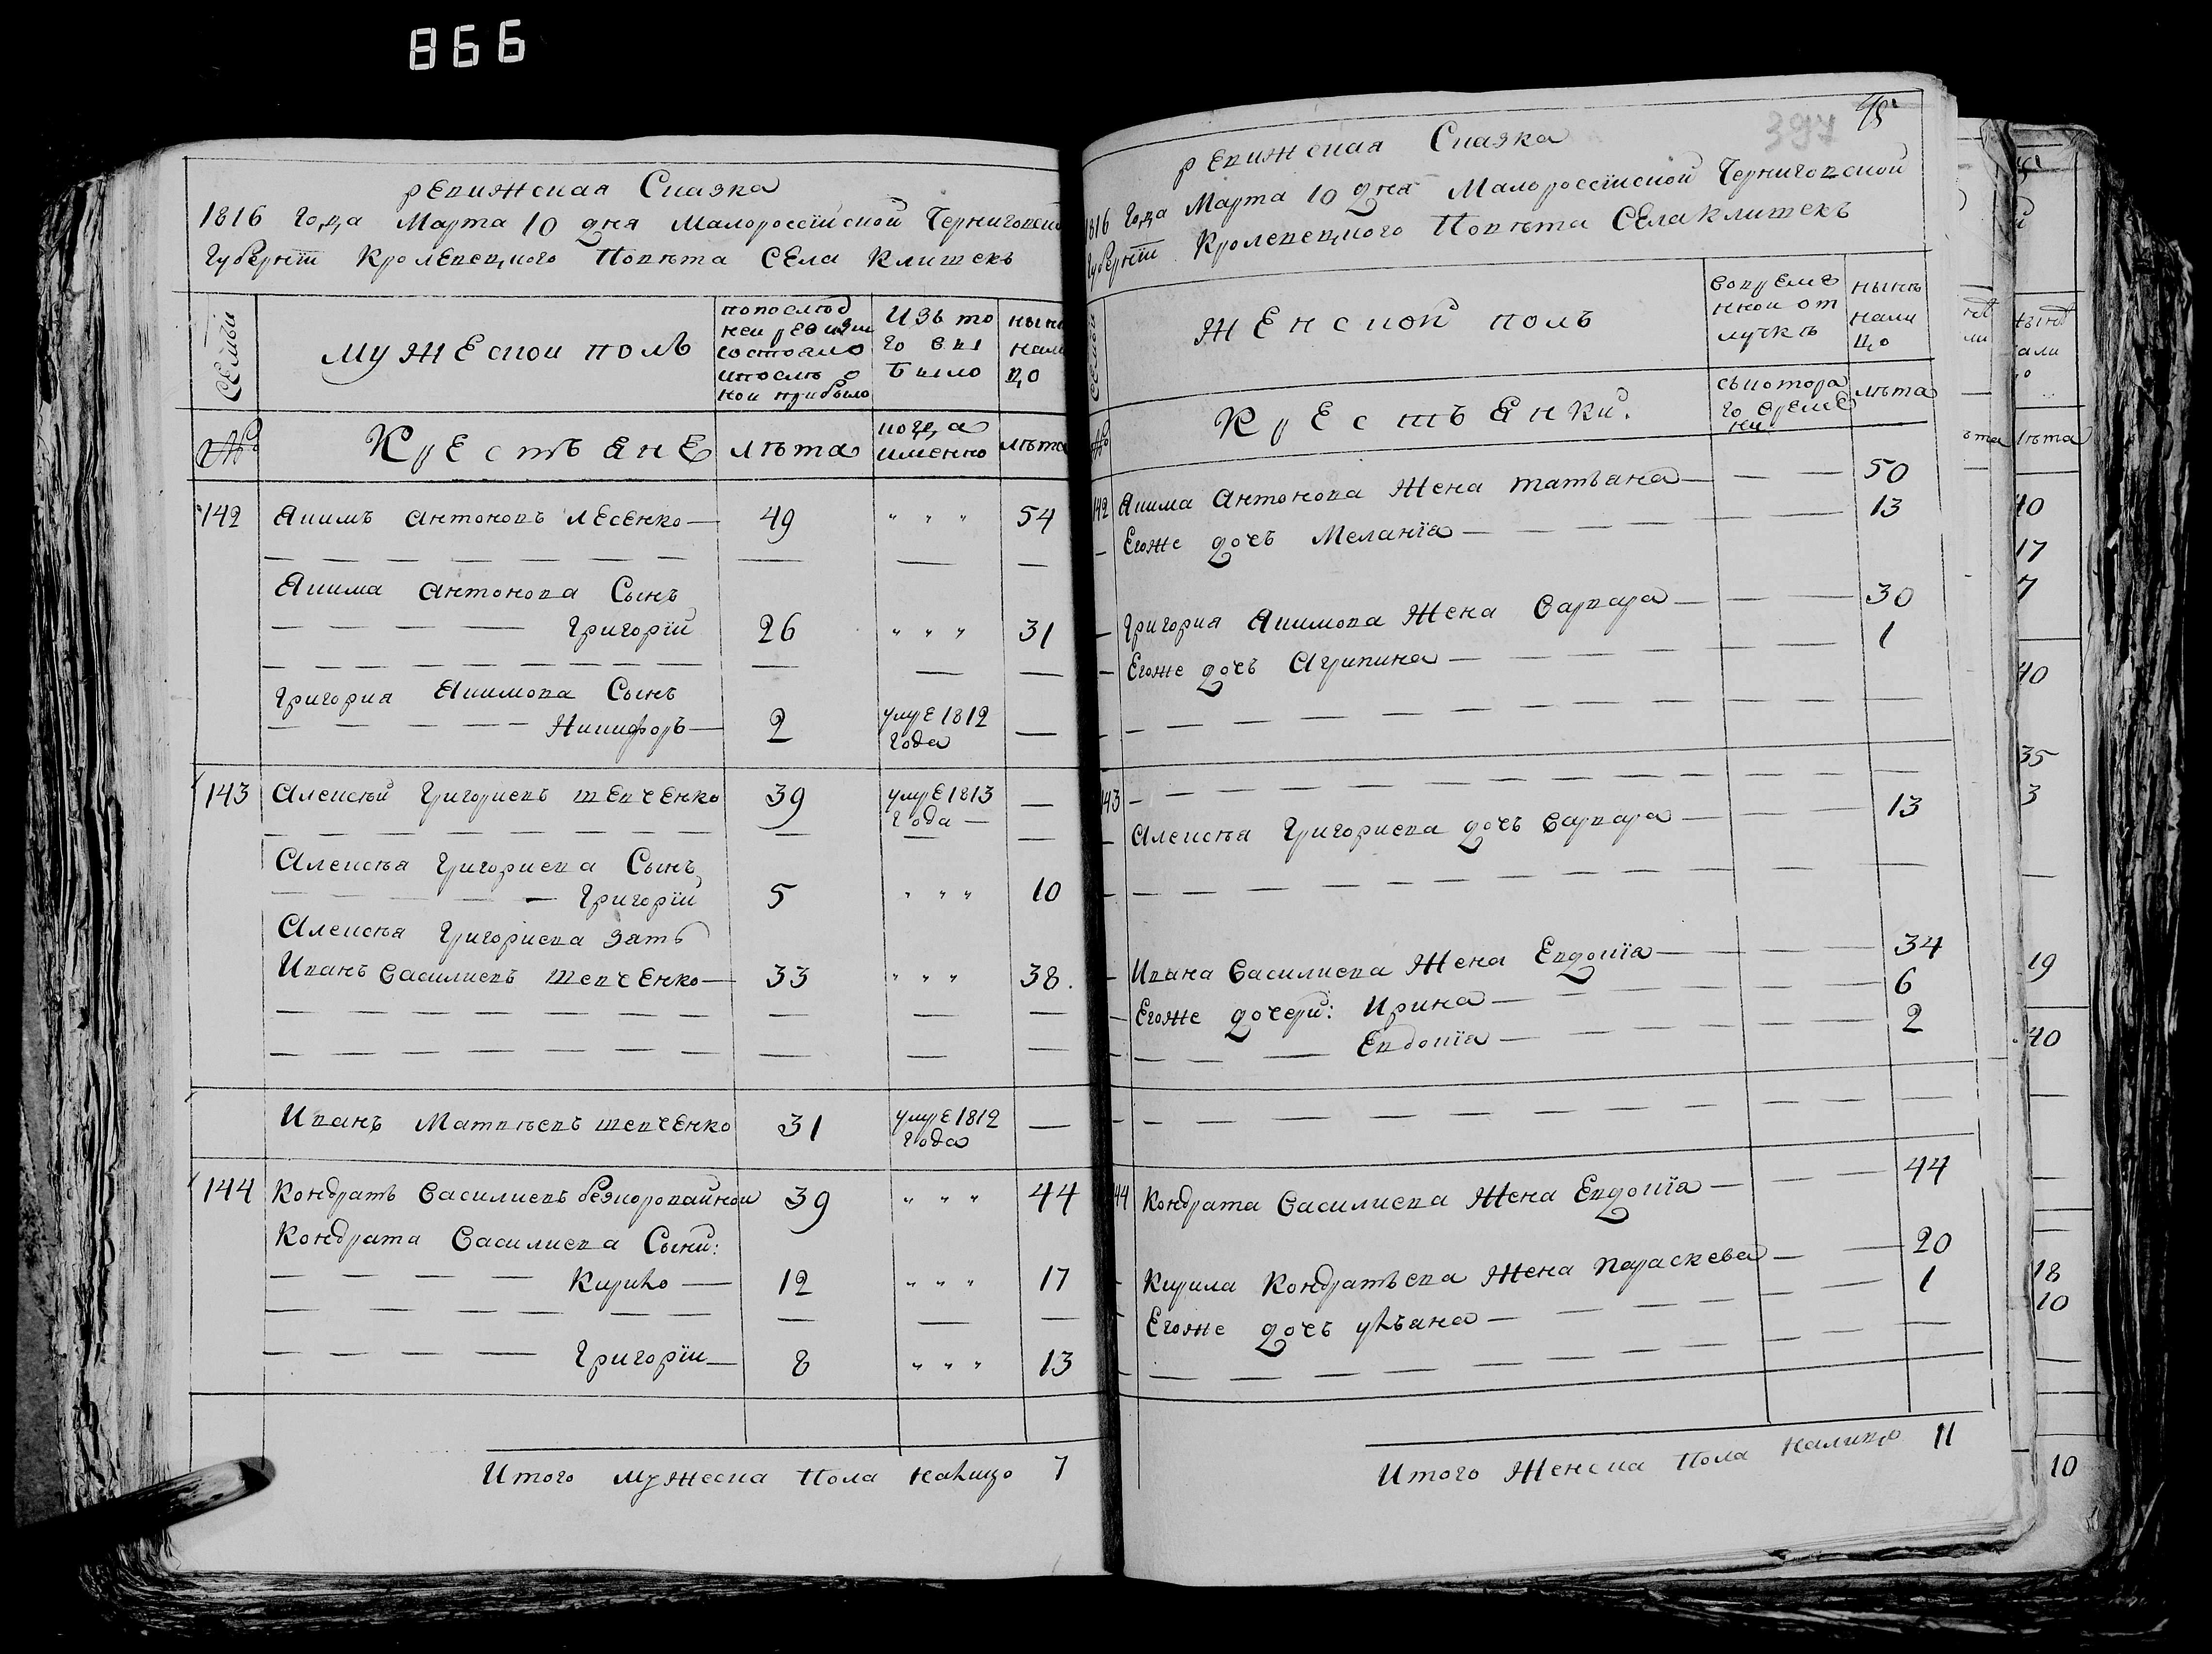 866
ревижская Сказка
1816 года Марта 10 дня Малороссїйской Черниговской
Губернїи Кролевецкого Повѣта Села Клишекъ
Семьи
мужеской полъ
попослѣд
неи ревизїи
состояло
ипослѣ о
ной прибыло
Изъ то
го вы
было
нынѣ
нали
цо
№
Крестьяне
лѣта
когда
именно
лѣта
142 Якимъ Антоновъ лесенко — 49 " " " 54
Якима Антонова Сынъ
Григорїй 26 " " " 31
Григория Якимова Сынъ
Никифоръ — 2 умре 1812 —
года
143 Алексѣй Григориевъ шевченко 39 умре 1813 —
года —
Алексѣя Григориева Сынъ
Григорїй 5 " " " 10
Алексѣя Григориева зать
Иванъ Василиевъ шевченко — 33 " " " 38.
Иванъ Матвѣевъ шевченко 31 умре 1812 —
года
144 Кондратъ Василиевъ безкоровайной 39 " " " 44
Кондрата Василиева Сыни:
Кирило — 12 " " " 17
Григорїи — 8 " " " 13
Итого мужеска пола налицо 7
397
ревижская Сказка
1816 года Марта 10 дня Малороссїйской Черниговской
Губернїи Кролевецкого Повѣта Села Клишекъ
Семьи
женской полъ
вовреме
нной от
лучкѣ
нынѣ
нали
цо
№
Крестьянки.
съкотора
го време
ни
лѣта
142 Якима Антонова Жена татьяна — 50
Егоже дочъ Меланїя — 13
Григория Якимова Жена Варвара — 30
Егоже дочъ Агрипина — 1
143
Алексѣя Григориева дочъ варвара — 13
Ивана Василиева Жена Евдокїя — 34
Егоже дочери: Ирина — 6
Евдокїя — 2
144 Кондрата Василиева Жена Евдокїя — 44
Кирила Кондратьева Жена параскева — 20
Егоже дочъ ульяна — 1
Итого Женска пола налицо 11
лѣта
40
17
7
40
35
3
19
40
18
10
10